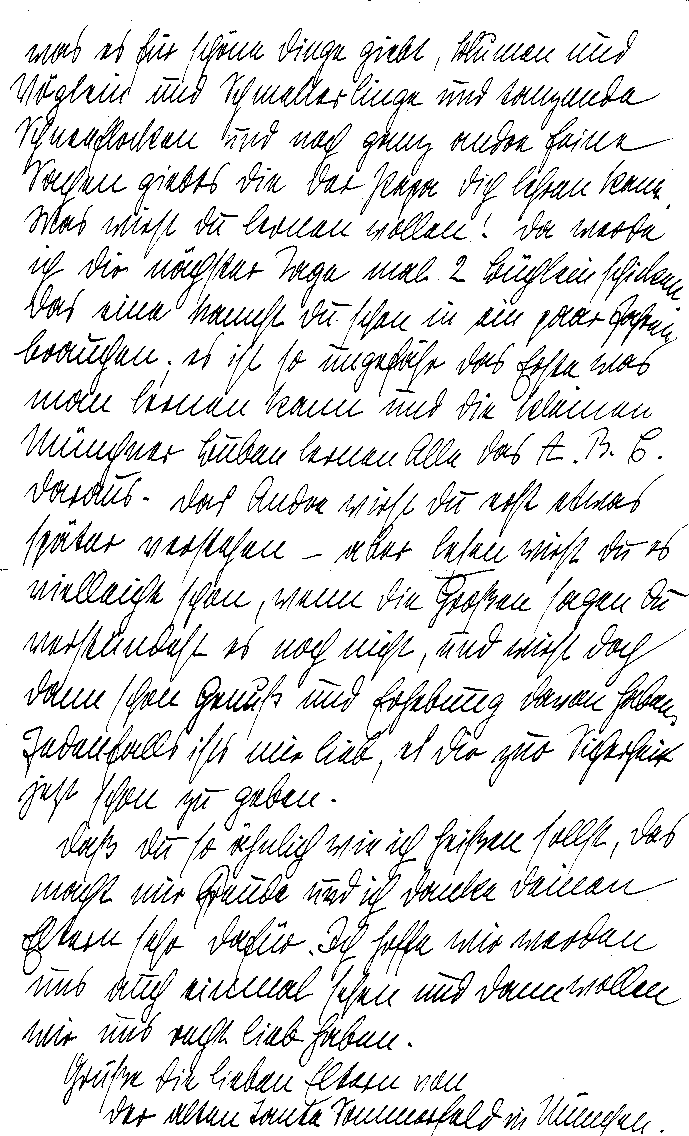 was es für schöne Dinge giebt, Blumen und
Vöglein und Schmetterlinge und tanzende
Schneeflocken und noch ganz andre feine
Sachen giebts die der Papa dich lehren kann.
Was wirst du lernen wollen! Da werde
ich dir nächster Tage mal 2 Büchlein schicken.
Das eine kannst du schon in ein paar Jahren
brauchen; es ist so ungefähr das Erste was
man lernen kann und die kleinen
Münchner Buben lernen Alle das A. B. C.
daraus. Das Andre wirst du erst etwas
später verstehen – aber lesen wirst du es
vielleicht schon, wenn die Großen sagen du
verständest es noch nicht, und wirst doch
dann schon Genuß und Erhebung davon haben.
Jedenfalls ists mir lieb, es dir zur Sicherheit
jetzt schon zu geben.
Daß du so ähnlich wie ich heißen sollst, das
macht mir Freude und ich danke deinen
Eltern sehr dafür. Ich hoffe wir werden
uns auch einmal sehen und dann wollen
wir uns recht lieb haben.
Grüße die lieben Eltern von
der alten Tante Sommerfeld in München.